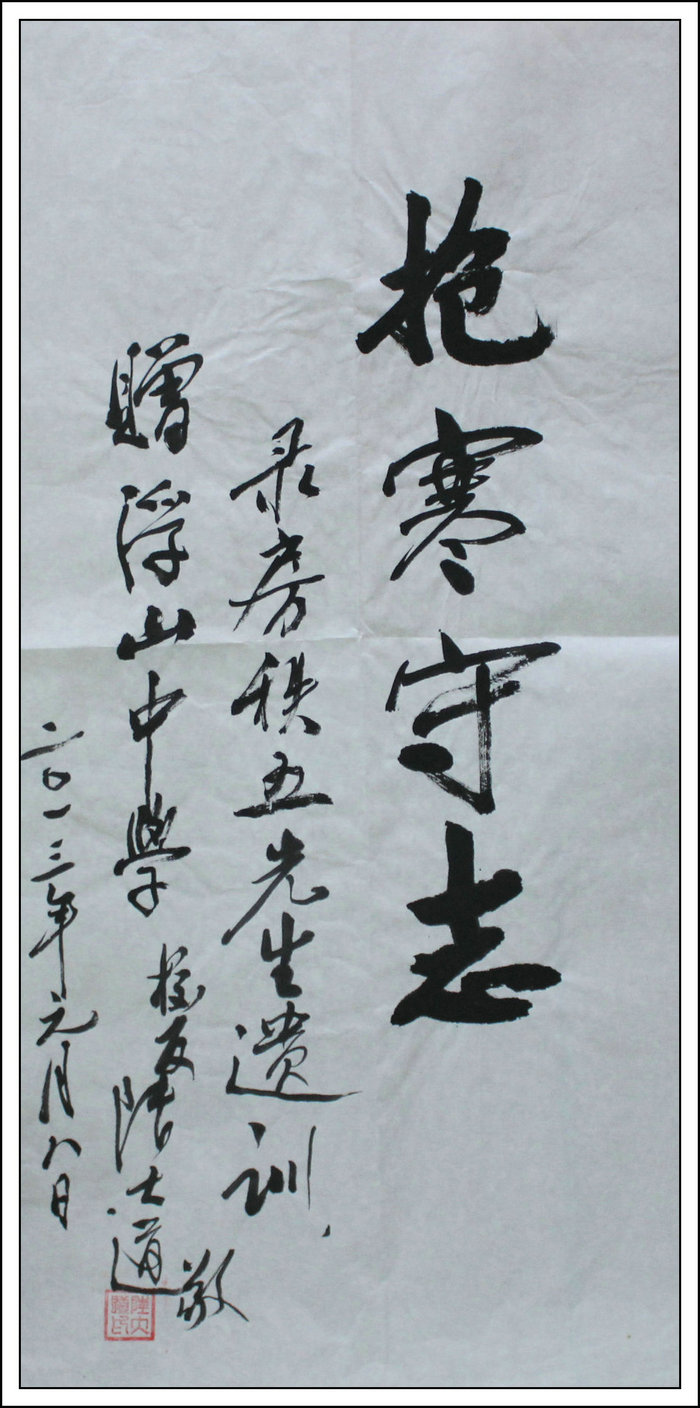 抱寒守志
录房秩五先生遗训
赠浮山中學 校友陆大道敬
二〇一三年元月八日
陆大道印